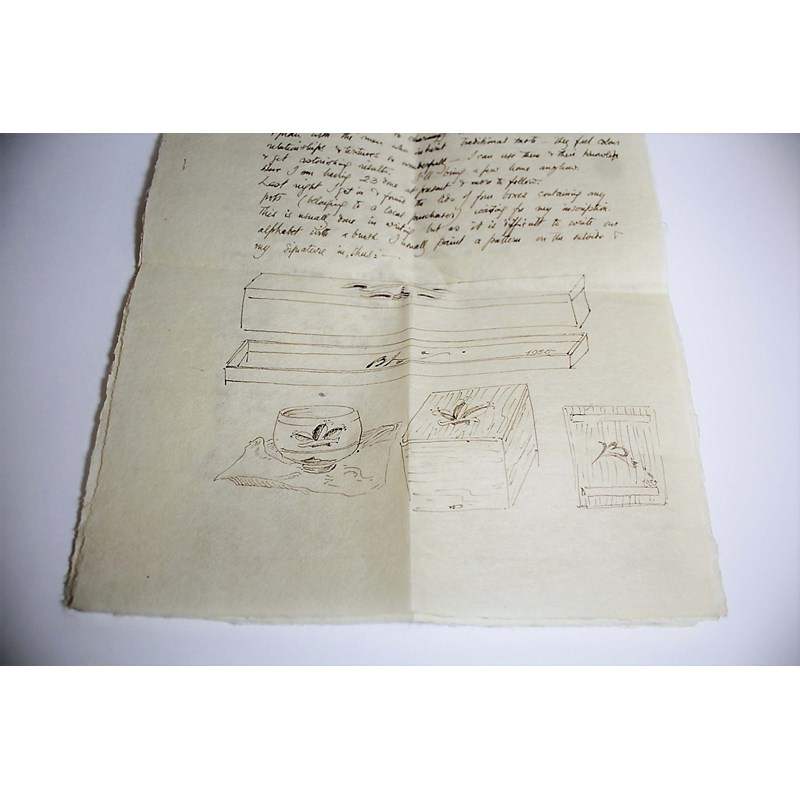 with the
traditional taste — they feel colour
relationships & textures so wonderfully — I can use them & their knowledge
& get astonishing results. I'll bring a few home anyhow.
I am having 23 done at present & more to follow.
Last night I got in & found the lids of four boxes containing my
pots (belonging to a local purchaser) waiting for my inscription.
This is usually done in writing but as it is difficult to write our
alphabet with a brush I usually paint a pattern on the outside &
my signature in, thus: —
1950
B